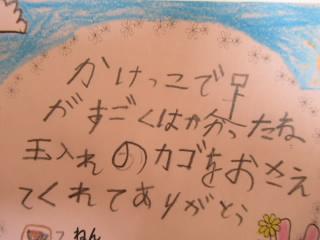 かけっこで足
がすごくはやかったね
玉入れのカゴをおさえ
てくれてありがとう
ねん